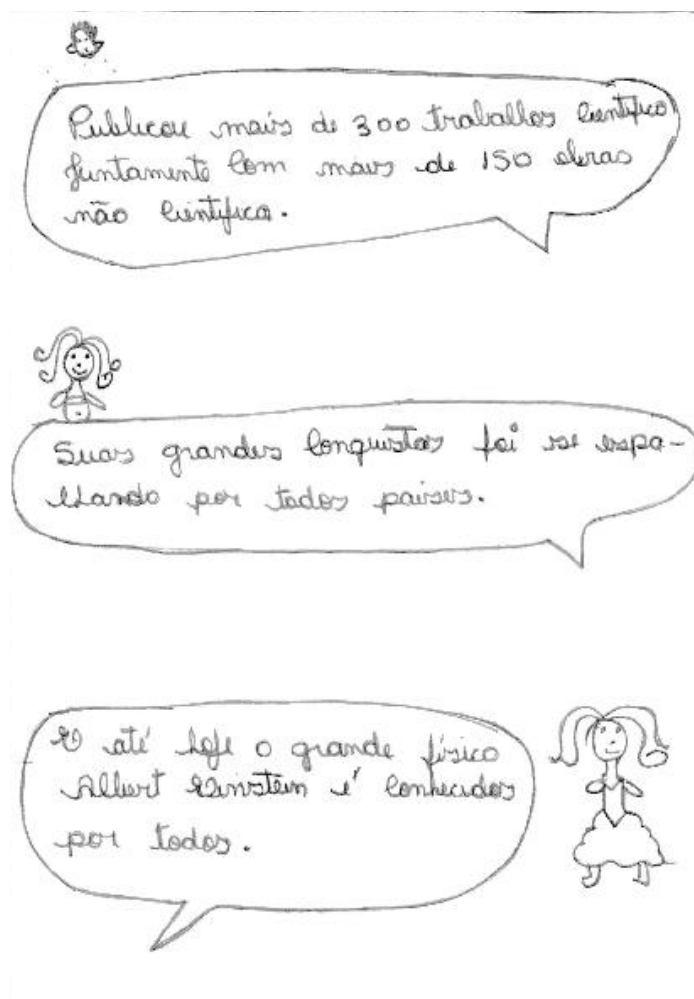 Publicou mais de 300 traballos cientifico
juntamente com mais de 150 obras
não cientifica.
Suas grandes conquistas foi se espa-
lhando por todos paises.
E até hoje o grande físico
Albert Einstein é conhecidos
por todos.